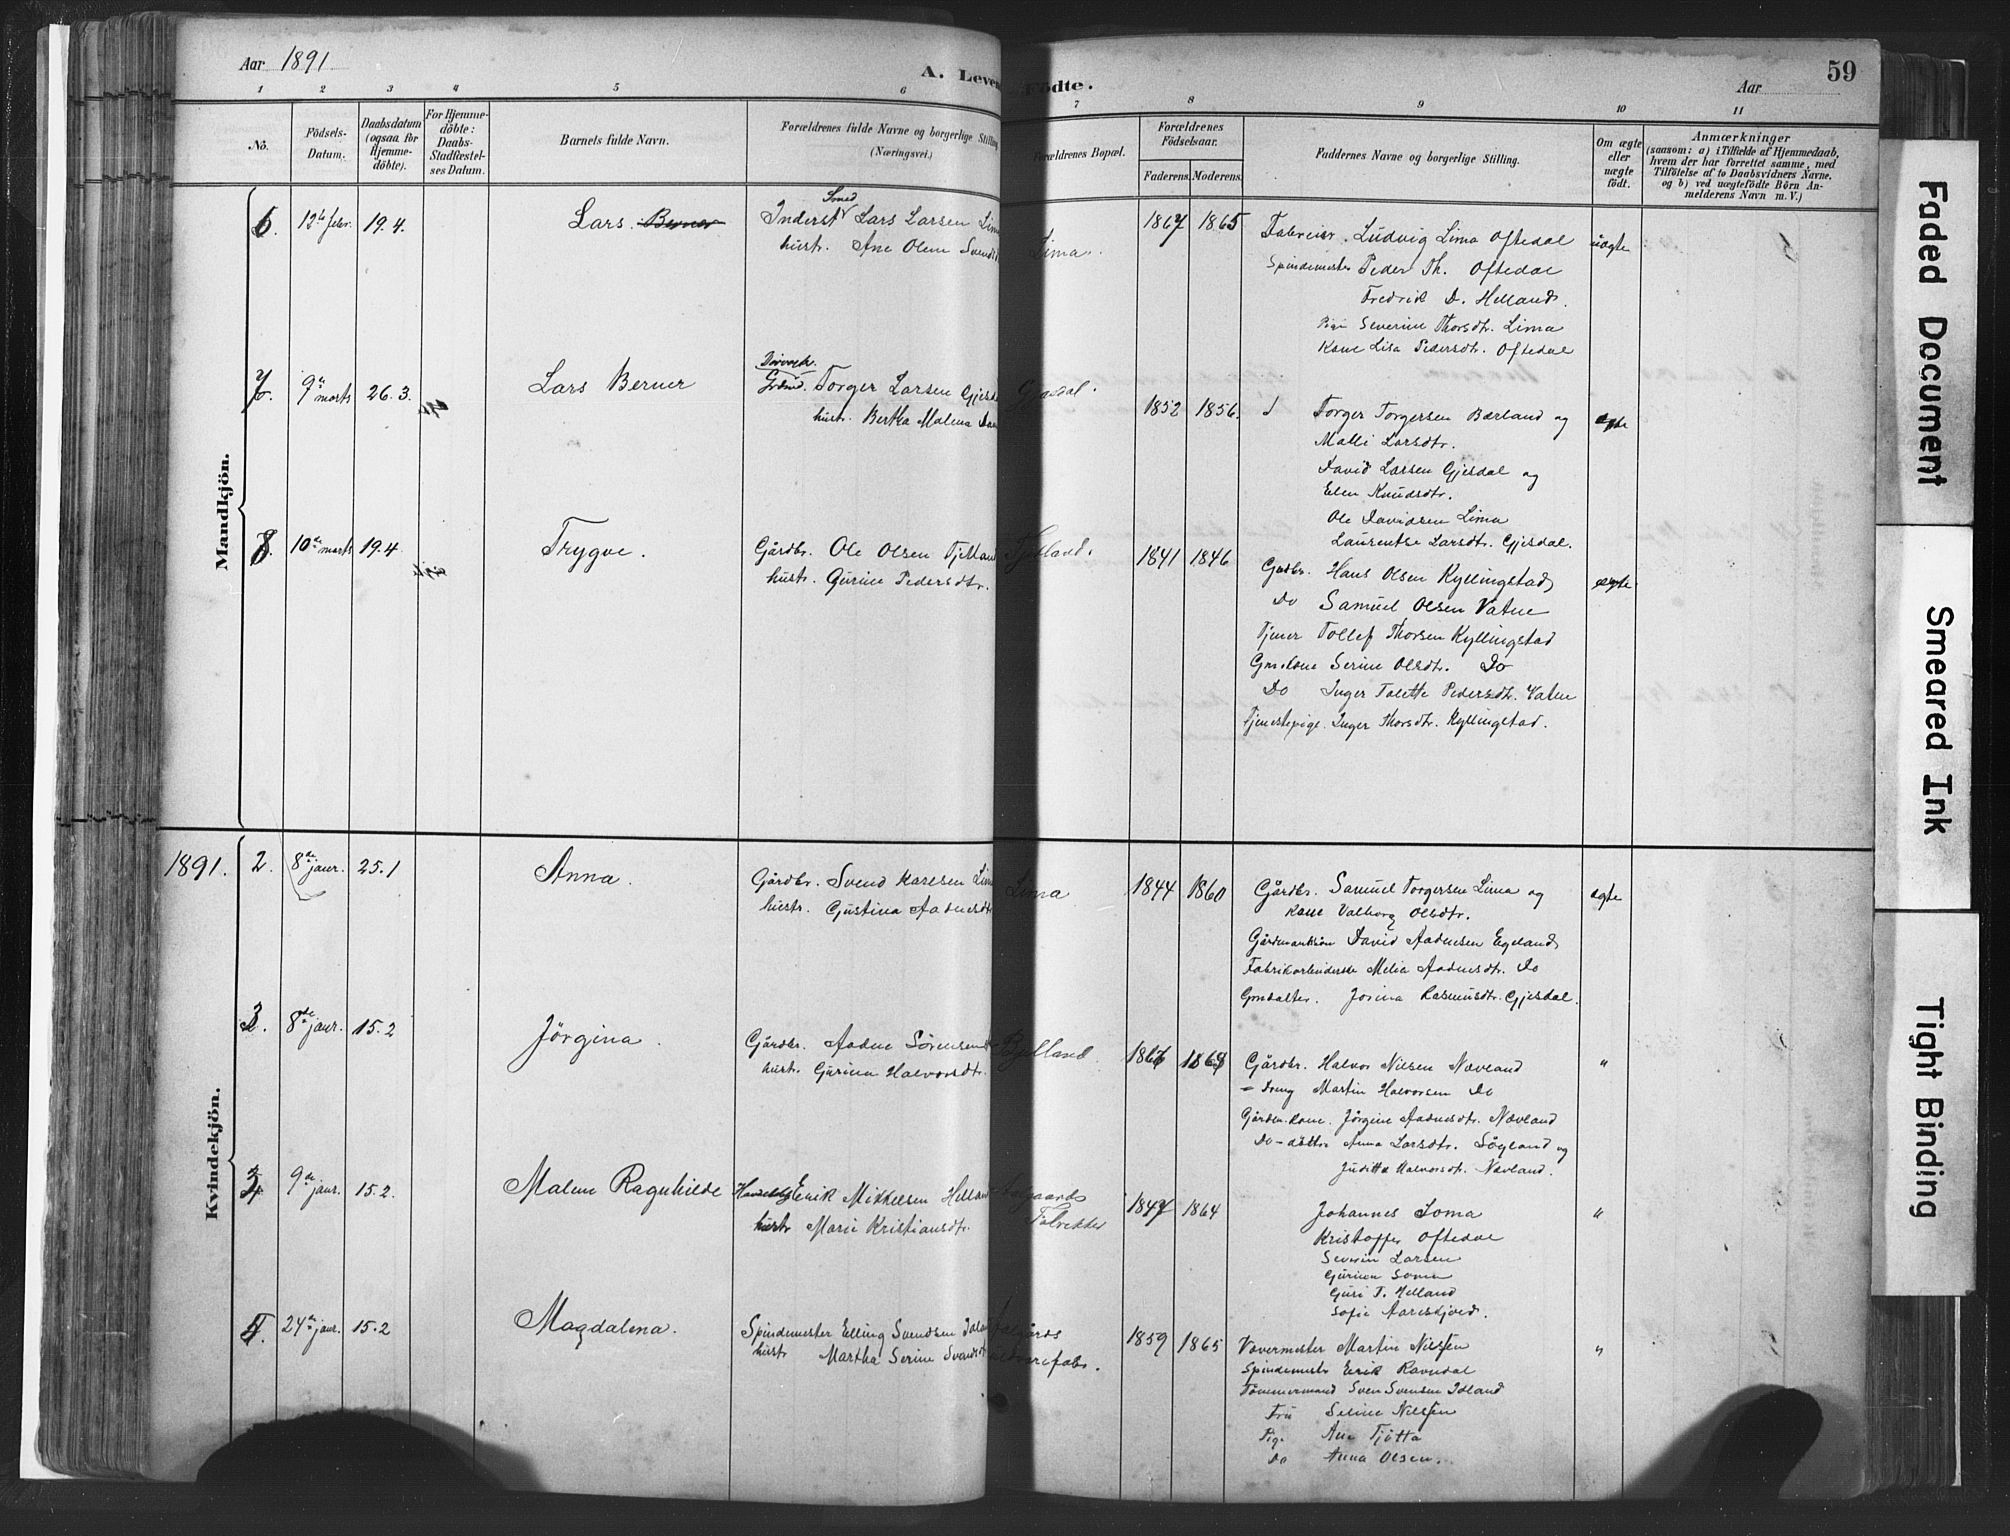 Aar 1891
A. Leven
Födte.
Aar
59
1 2 3 4 5 6 7 8 9 10 11
No.
Födsels-Datum.
Daabsdatum (ogsaa for Hjemme-döbte).
For Hjemme-döbte: Daabs-Stadfæstel-ses Datum.
Barnets fulde Navn.
Forældrenes fulde Navne og borgerlige Stilling (Næringsvei.)
Forældrenes Bopæl.
Forældrenes Födselsaar.
Faderens. Moderens.
Faddernes Navne og borgerlige Stilling.
Om ægte eller uægte födt.
Anmærkninger
(saasom: a) i Tilfælde af Hjemmedaab,
hvem der har forrettet samme, med
Tilföielse af to Daabsvidners Navne.
og b) ved uægtefödte Börn An-
melderens Navn m. V.)
Mandkjön.
6. 12te febr. 19.4. Lars Berner
Smed
Inderst Lars Larsen Lima
hustr. Ane Olene Svends
Lima.
1867 1865
Ludvig Lima Oftedal
Spindemester Peder Th. Oftedal
Fredrik D. Helland.
Pige Severine Thorsdtr. Lima
Kone Lisa Pedersdtr. Oftedal
uægte
7. 9de marts 26.3. Lars Berner
Torger Larsen Gjesdal
hustr. Bertha Malena
Gjesdal.
1852 1856.
Torger Torgersen Bærland og
Malli Larsdtr.
David Larsen Gjesdal og
Elen Knudsdtr.
Ole Davidsen Lima
Laurentse Larsdtr. Gjesdal.
ægte
8. 10de marts 19.4 Trygve.
Gårdbr. Ole Olsen Fjelland
hustr. Gurine Pedersdtr.
Fjelland.
1841 1846
Gårdbr. Hans Olsen Kyllingstad
Do Samuel Olsen Vatne
Tjener Tollef Thorsen Kyllingstad
Gmdkone Serine Olsdtr. Do
Do Inger Talette Pedersdtr. Vatne
Tjenestepige. Inger Thorsdtr. Kyllingstad.
ægte
Kvindekjön.
1891.
2. 8de janr. 25.1 Anna.
Gårdbr. Svend Karlsen Lima
hustr. Gjustina Aadnesdtr
Lima
1844 1860
Gårdbr. Samuel Torgersen Lima og
Kone Valborg Olsdtr.
Gårdmandssön David Aadnesen Egeland
Fabrikarbeiderske Melia Aadnesdtr. Do
Gmdalter. Josina Rasmusdtr. Gjesdal.
ægte
3. 8de janr. 15.2 Jörgina.
Gårdbr. Aadne Sörensen
hustr. Gurina Halvorsdtr.
Bjelland
1867 1869
Gårdbr. Halvor Nilsen Nævland
Dreng Martin Halvorsen Do
Gårdm.kone. Jörgine Aadnesdtr. Nævland
Do-datter Anna Larsdtr. Söyland og
Juditte Halvorsdtr. Nævland.
"
4. 9de janr. 15.2. Malene Ragnhilde
Erik Mikkelsen Helland
hustr Marie Kristiansdtr.
Aalgaards
Fabrikker
1847 1864
Johannes Soma
Kristoffer Oftedal
Severin Larsen
Gurine Soma
Guri T. Helland
Sofie Aareskjold.
"
5. 24de janr. 15.2 Magdalena.
Spindemester Elling Svendsen Idland
hustr Martha Serine Svendsdtr
Aalgårds
Uldvarefabr.
1859 1865
Vævermester Martin Nilsen
Spindemester Eerik Ravndal
Tömmermand Sven Svensen Idland
Fru Seline Nilsen
Pige Ane Tjötta
Do Anna Olsen.
"
Faded Document
Smeared Ink
Tight Binding